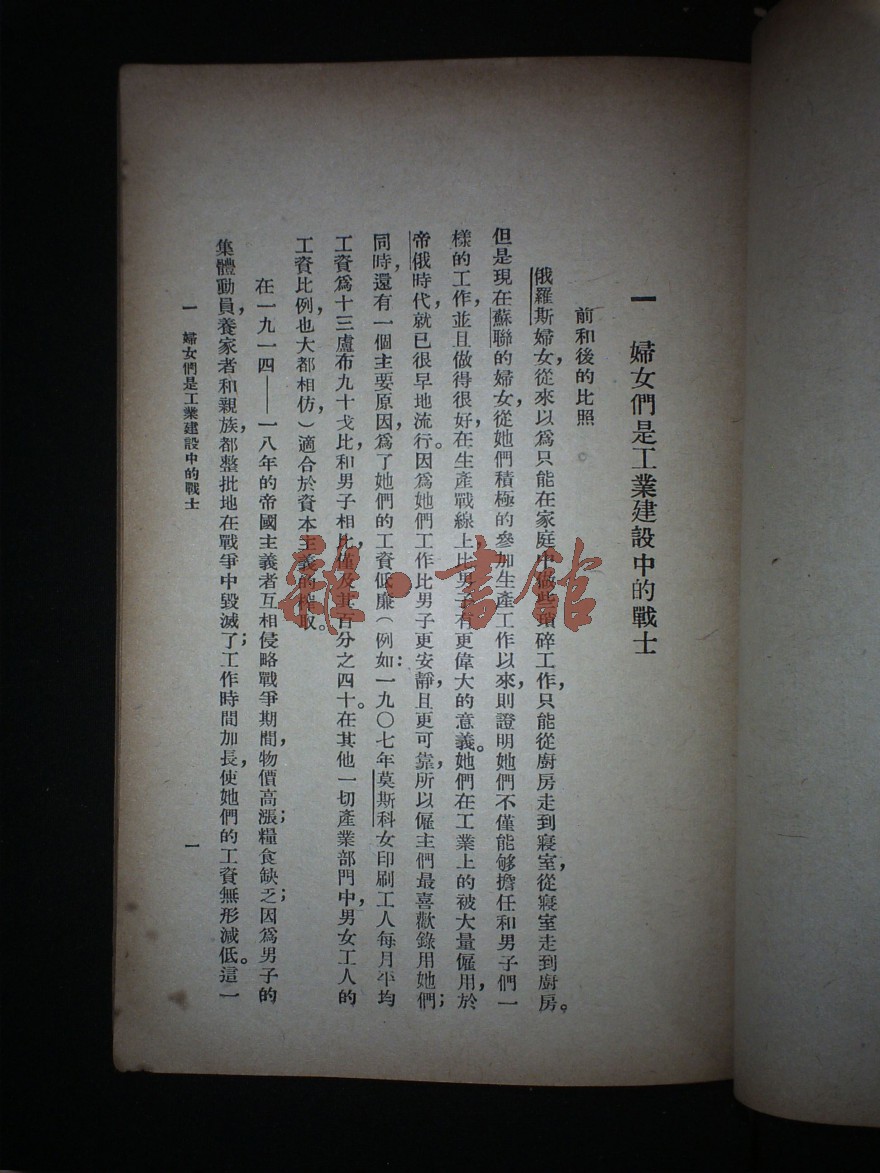 一　婦女們是工業建設中的戰士
前和後的比照
俄羅斯婦女，從來以爲只能在家庭中做些瑣碎工作，只能從廚房走到寢室，從寢室走到廚房。
但是現在蘇聯的婦女，從她們積極的參加生產工作以來，則證明她們不僅能够擔任和男子們一
樣的工作，並且做得很好，在生產戰線上比男子有更偉大的意義。她們在工業上的被大量僱用，於
帝俄時代，就已很早地流行。因爲她們工作比男子更安靜，且更可靠，所以僱主們最喜歡錄用她們；
同時，還有一個主要原因，爲了她們的工資低廉（例如：一九〇七年莫斯科女印刷工人每月平均
工資爲十三盧布九十戈比，和男子相比，僅及其百分之四十。在其他一切產業部門中，男女工人的
工資比例，也大都相仿，）適合於資本主義的榨取。
在一九一四——一八年的帝國主義者互相侵略戰爭期間，物價高漲；糧食缺乏；因爲男子的
集體動員，養家者和親族，都整批地在戰爭中毀滅了；工作時間加長，使她們的工資無形減低。這一
一　婦女們是工業建設中的戰士
一
雜·書館